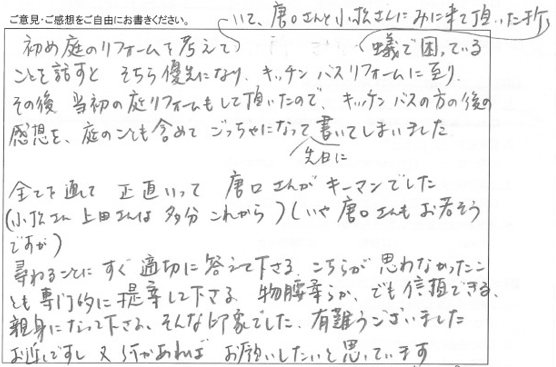 ご意見・ご感想をご自由にお書きください。
いて、唐口さんと小松さんにみに来て頂いた所
初め庭のリフォームを考えて
蟻で困っている
ことを話すと そちら優先になり、キッチン バスリフォームに至り、
その後 当初の庭リフォームもして頂いたので、キッチン バスの方の後の
感想を、庭のことも含めて ごっちゃになって書いてしまいました
先日に
全てを通して 正直いって 唐口さんがキーマンでした
(小松さん 上田さんは 多分 これから)(いや唐口さんもお若そう
ですが)
尋ねることに すぐ 適切に答えて下さる こちらが 思わなかったこ
とも専門的に提案して下さる 物腰柔らか、でも信頼できる、
親身になって下さる、そんな印象でした、有難うございました
お近いですし 又 何かあれば お願いしたいと思っています